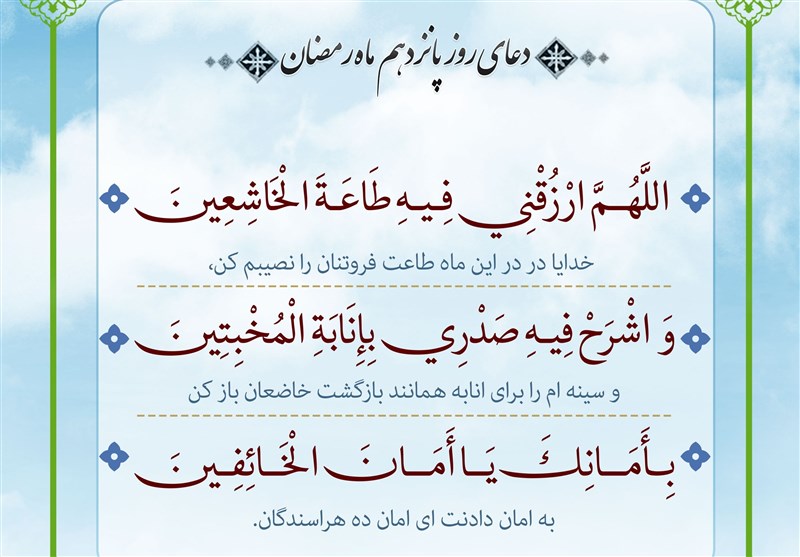 دعای روز پانزدهم ماه رمضان
اللَّهُمَّ ارْزُقْنِي فِيهِ طَاعَةَ الْخَاشِعِينَ
خدایا در در این ماه طاعت فروتنان را نصیبم کن،
وَ اشْرَحْ فِيهِ صَدْرِي بِإِنَابَةِ الْمُخْبِتِينَ
و سینه ام را برای انابه همانند بازگشت خاضعان باز کن
بِأَمَانِكَ يَا أَمَانَ الْخَائِفِينَ
به امان دادنت ای امان ده هراسندگان.